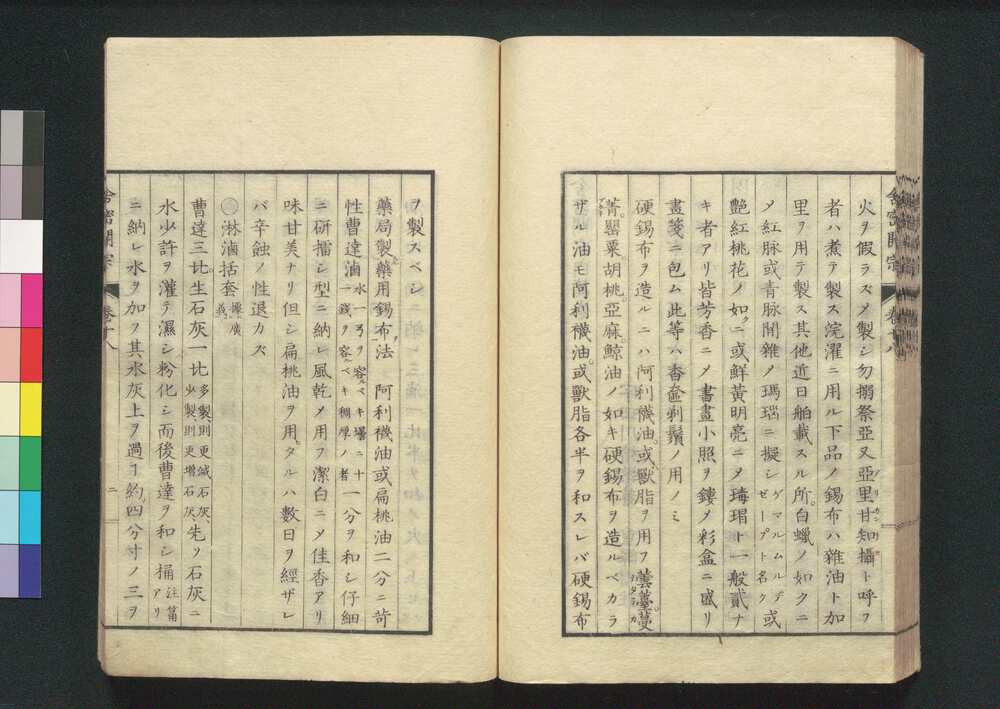 火ヲ假ラズメ製シ勿搦祭亞又亞里甘知攝ト呼フ
者ハ煮テ製ス浣濯ニ用ル下品ノ錫布ハ雜油ト加
里ヲ用テ製ス其他近日舶載スル所白蠟ノ如クニ
メ紅脉或青脉開雜ノ瑪瑙ニ擬シゲマルムルデゼープト名ク或
艶紅桃花ノ如ク或鮮黃明亮ニメ瑇瑁ト一般貳ナ
キ者アリ皆芳香ニメ書畫小照ヲ鏤メ彩盒ニ盛リ
畫箋ニ包ム此等ハ香奩剃鬚ノ用ノミ
硬錫布ヲ造ルニハ阿利襪油或獸脂ヲ用フ蕓薹蔓
菁罌粟胡桃亞麻鯨油ノ如キ硬錫布ヲ造ルベカラ
ザル油モ阿利襪油或獸脂各半ヲ和スレバ硬錫布
舎密開宗 卷十八
ヲ製スベシ
藥局製藥用錫布法 阿利襪油或扁桃油二分ニ苛
性曹達滷水一弓ヲ容ベキ壜ニ十一錢ヲ容ベキ稠厚ノ者一分ヲ和シ仔細
ニ研擂シ型ニ納レ風乾メ用フ潔白ニメ佳香アリ
味甘美ナリ但シ扁桃油ヲ用タルハ數日ヲ經ザレ
バ辛蝕ノ性退カズ
淋滷括套
曹達三比生石灰一比多製則更減石灰少製則更增石灰先ソ石灰ニ
水少許ヲ灌テ濕シ粉化シ而後曹達ヲ和シ桶注篇アリ
ニ納レ水ヲ加フ其水灰上ヲ過ヿ約四分寸ノ三ヲ
舎密開宗 卷十八 二